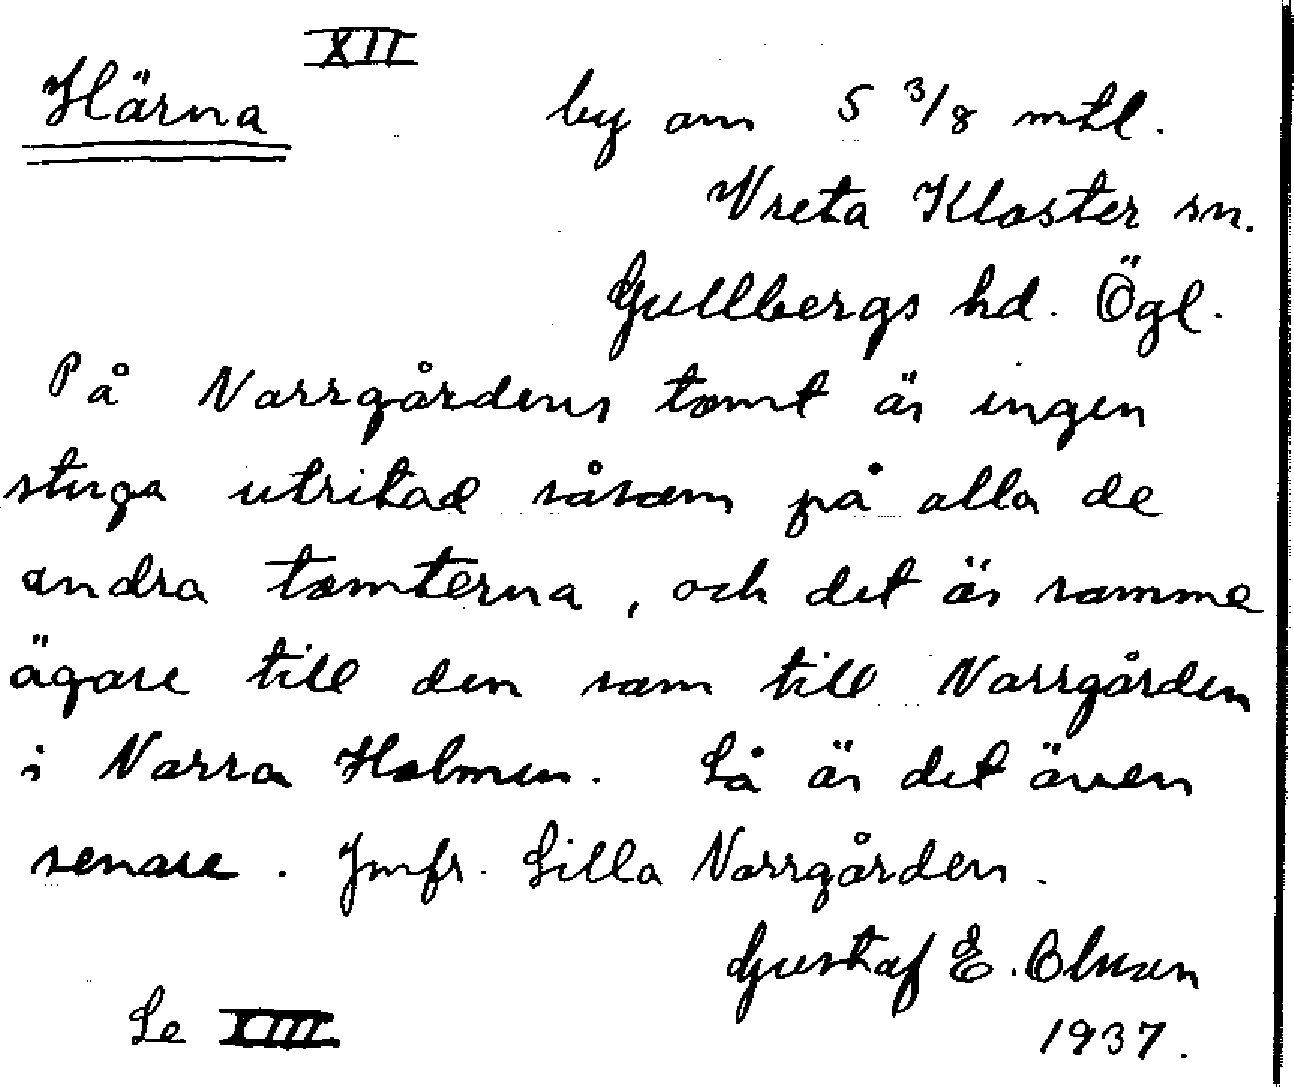 XII
Härna by om 5 3/8 mtl.
Vreta Kloster sn.
Gullbergs hd. Ögl.
På Norrgårdens tomt är ingen
stuga utritad såsom på alla de
andra tomterna, och det är samme
ägare till den som till Norrgården
i Norra Holmen. Så är det även
senare. Jmfr. Lilla Norrgården.
Gustaf E. Olsson
1937.
Se XIII